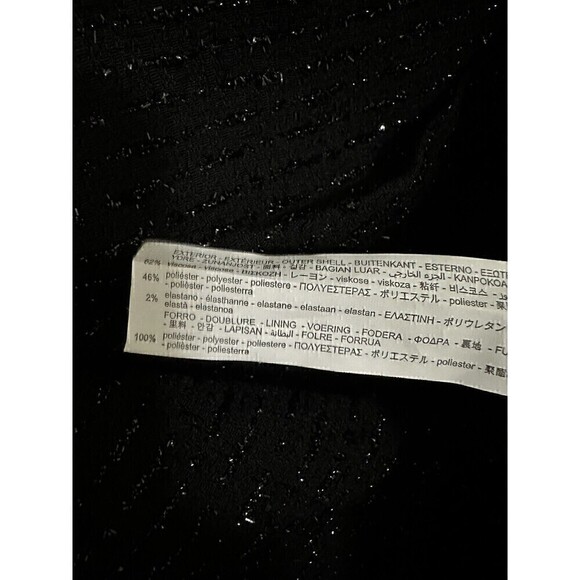 EXTERIOR - EXTÉRIEUR - OUTER SHELL - BUITENKANT - ESTERNO - ΕΞΩΤΙ
YDRE - ZUNANJOST - 面料 - 겉감 - BAGIAN LUAR - الجزء الخارجي - KANPOKOA
viscosa - viscose - ΒΙΣΚΟΖΗ - レーヨン - viskose - viskoza - 粘纤 - 비스코스
46% poliéster - polyester - poliestere - ΠΟΛΥΕΣΤΕΡΑΣ - ポリエステル - poliester - 聚
- polièster - poliesterra
2% elastano - élasthanne - elastane - elastaan - elastan - ΕΛΑΣΤΙΝΗ - ポリウレタン
elastà - elastanoa
FORRO - DOUBLURE - LINING - VOERING - FODERA - ΦΟΔΡΑ - 裏地 - FU
- 里料 - 안감 - LAPISAN - البطانة - FOLRE - FORRUA
100% poliéster - polyester - poliestere - ΠΟΛΥΕΣΤΕΡΑΣ - ポリエステル - poliester - 聚酯
- polièster - poliesterra